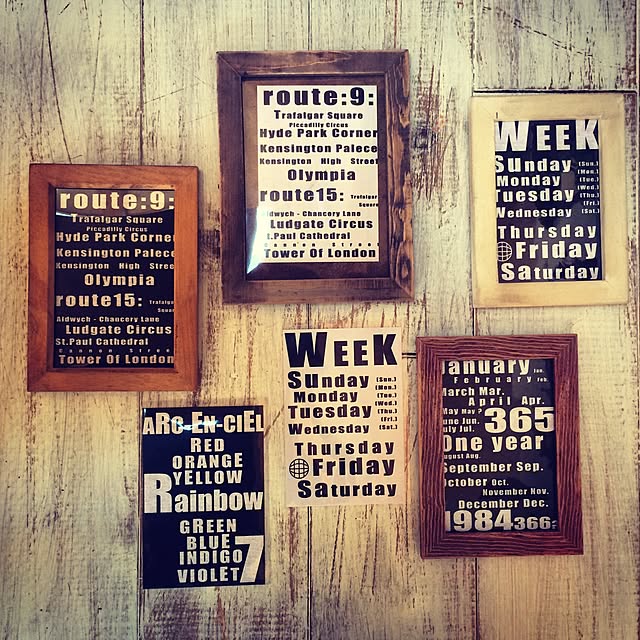 route:9:
Trafalgar Square
Piccadilly Circus
Hyde Park Corner
Kensington Palece
Kensington High Street
Olympia
route15: Trafalgar Square
Aldwych - Chancery Lane
Ludgate Circus
St.Paul Cathedral
Cannon Street
Tower Of London
route:9:
Trafalgar Square
Piccadilly Circus
Hyde Park Corner
Kensington Palece
Kensington High Street
Olympia
route15: Trafalgar
Square
Aldwych - Chancery Lane
Ludgate Circus
t.Paul Cathedral
Cannon Street
Tower Of London
WEEK
SUnday (Sun.)
Monday (Mon.)
Tuesday (Tue.)
Wednesday (Wed.)
(Thu.)
(Fri.)
(Sat.)
Thursday
Friday
Saturday
WEEK
SUnday (Sun.)
Monday (Mon.)
Tuesday (Tue.)
Wednesday (Wed.)
(Thu.)
(Fri.)
(Sat.)
Thursday
Friday
Saturday
ARC-EN-CIEL
RED
ORANGE
YELLOW
Rainbow
GREEN
BLUE
INDIGO
VIOLET 7
January Jan.
February Feb.
March Mar.
April Apr.
May May ?
une Jun. 365
uly Jul.
One year
ugust Aug.
September Sep.
October Oct.
November Nov.
December Dec.
1984 366?